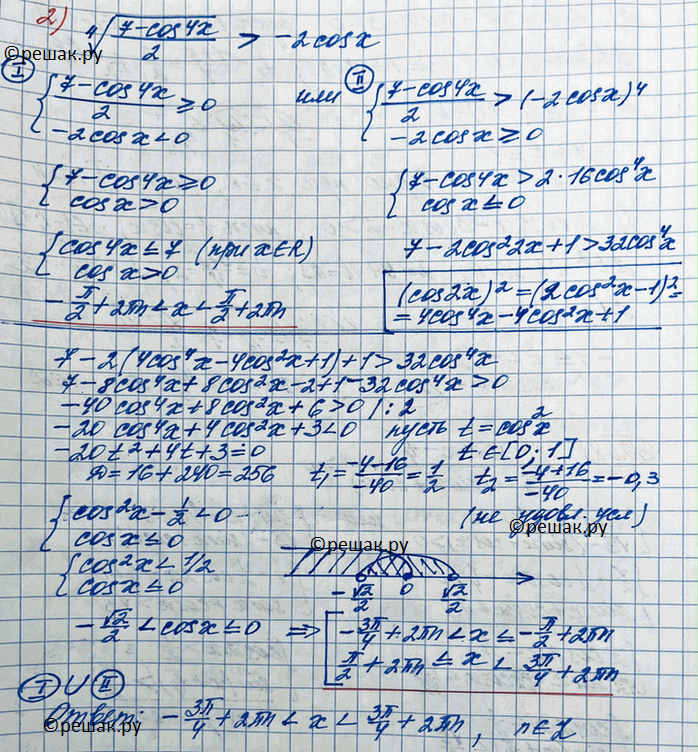 2) ⁴√((7-cos4x)/2) > -2cosx
©решак.ру
I { (7-cos4x)/2 ≥ 0
-2cosx < 0
или II { (7-cos4x)/2 > (-2cosx)⁴
-2cosx ≥ 0
{ 7-cos4x ≥ 0
cosx > 0
{ 7-cos4x > 2·16cos⁴x
cosx ≤ 0
{ cos4x ≤ 7 (при x∈R)
cosx > 0
7-2cos²2x+1 > 32cos⁴x
-π/2+2πn < x < π/2+2πn
(cos2x)² = (2cos²x-1)² =
= 4cos⁴x-4cos²x+1
7-2(4cos⁴x-4cos²x+1)+1 > 32cos⁴x
7-8cos⁴x+8cos²x-2+1-32cos⁴x > 0
-40cos⁴x+8cos²x+6 > 0 /:2
-20cos⁴x+4cos²x+3 < 0 пусть t = cos²x
-20t²+4t+3 = 0 t∈[0;1]
©решак.ру
D = 16+240 = 256 t₁ = (-4-16)/-40 = 1/2 t₂ = (-4+16)/-40 = -0,3
(не удовл. усл)
©решак.ру
{ cos²x-1/2 < 0
cosx ≤ 0
©решак.ру
{ cos²x < 1/2
cosx ≤ 0
-√2/2 0 √2/2
-√2/2 < cosx ≤ 0 ⇒ [ -3π/4+2πn < x ≤ -π/2+2πn
π/2+2πn ≤ x < 3π/4+2πn
I ∪ II
©решак.ру
Ответ: -3π/4+2πn < x < 3π/4+2πn, n∈Z